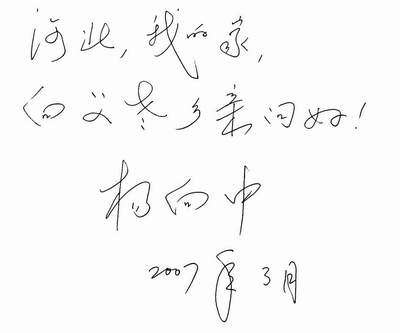 河北,我的家,
向父老乡亲问好!
杨向中
2007年3月